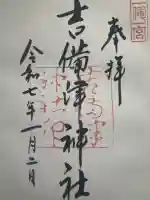 奉拝
吉備津神社
令和七年一月二日